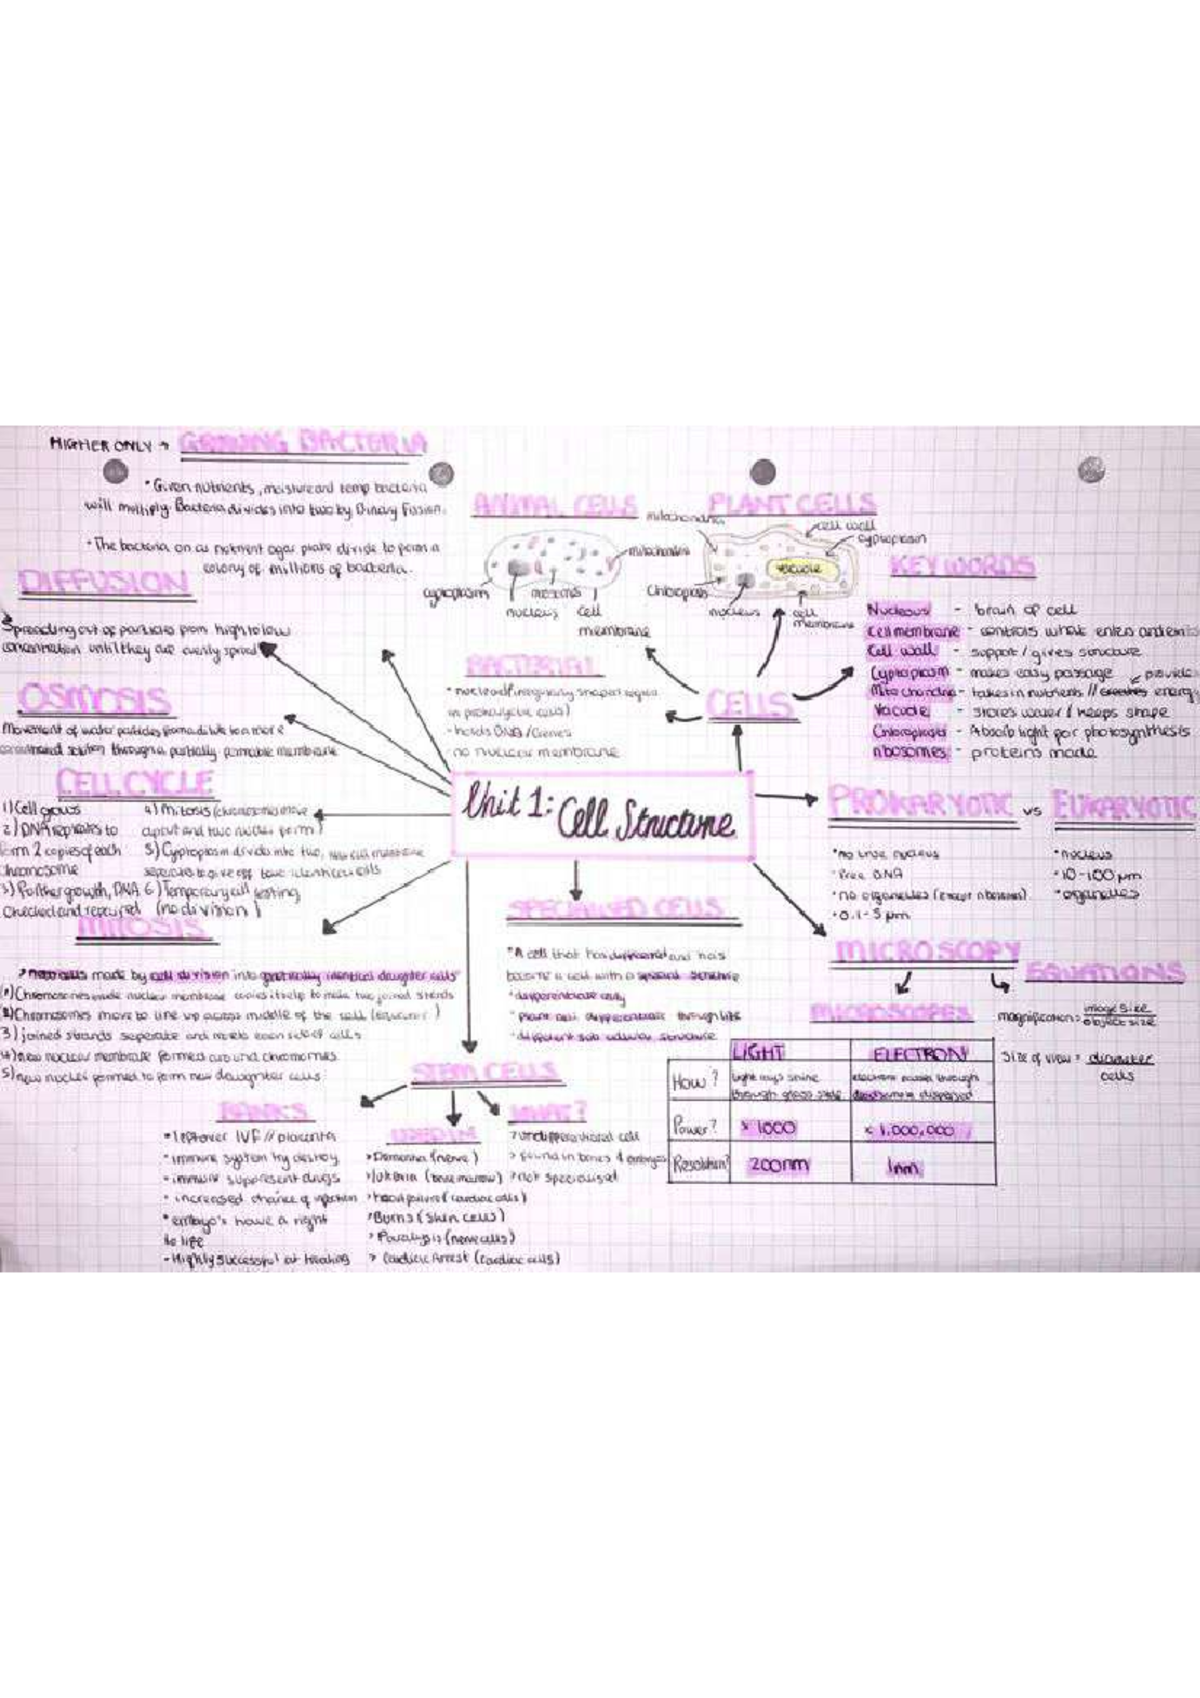 HIGHER ONLY → GROWING BACTERIA
• Given nutrients, moisture and temp bacteria
will multiply. Bacteria divides into two by Binary Fission.
• The bacteria on as nutrient agar plate divide to form a
colony of millions of bacteria.
DIFFUSION
Spreading out of particles from high to low
concentration until they are evenly spread
OSMOSIS
Movement of water particles from a dilute to a more
concentrated solution through a partially permable membrane
CELL CYCLE
1) Cell grows
2) DNA replicates to
form 2 copies of each
chromosome
3) Further growth, DNA
checked and repaired
4) Mitosis (chromosomes move
apart and two nuclei form)
5) Cyptoplasm divide into two, new cell membrane
seperates to give off two identical cells
6) Temporary cell resting
(no division)
MITOSIS
made by cell division into genetically identical daughter cells
Chromosomes made nuclear membrane copies itself to make two joined strands
2) Chromosomes move to line up across middle of the cell
3) joined strands seperate and moves each side of cells
4) new nuclear membrane formed around chromomes
5) new nuclei formed to form new daughter cells
ANIMAL CELLS
mitochondria
cyptoplasm
nucleus
cell
membrane
PLANT CELLS
mitochondria
cell wall
cyptoplasm
vacuole
Chloroplasts
nucleus
cell
membrane
KEYWORDS
Nucleous - brain of cell
Cell membrane - controls what enters and exits
Cell wall - support / gives structure
Cyptoplasm - makes easy passage
provides
Mitochondria - takes in nutrients // energy
Vacuole - stores water / keeps shape
Chloroplasts - Absorb light for photosynthesis
ribosomes - proteins made
BACTERIAL
• nucleoid (irregularly shaped region
in prokaryotic cells)
- holds DNA / Genes
- no nuclear membrane
CELLS
Unit 1: Cell Structure
PROKARYOTIC vs EUKARYOTIC
• no true nucleus
• Free DNA
• no organelles (except ribosomes)
• 0.1-5 µm
• nucleus
• 10-100 µm
• organelles
SPECIALISED CELLS
• A cell that has differented and has
become a cell with a special structure
• differentiate early
• plant cell differentiate through life
• different sub cellular structure
MICROSCOPY
MICROSCOPES
EQUATIONS
magnification = image size / object size
Size of view = diameter / cells
LIGHT
ELECTRON
How?
light rays shine
through glass slide
electrons passes through
Power?
× 1000
× 1,000,000
Resolution?
200nm
1nm
STEM CELLS
BANKS
• leftover IVF // placenta
• immune system try destroy
- immune suppresent drugs
• increased chance of infection
• embryo's have a right
to life
- Highly successful at treating
USED IN
> Dementia (nerve)
(bone marrow)
> heart failure (cardiac cells)
> Burns (skin cells)
> Paralysis (nerve cells)
> Cardiac Arrest (cardiac cells)
WHAT?
> undifferentiated cell
> found in bones & embryos
> not specialised